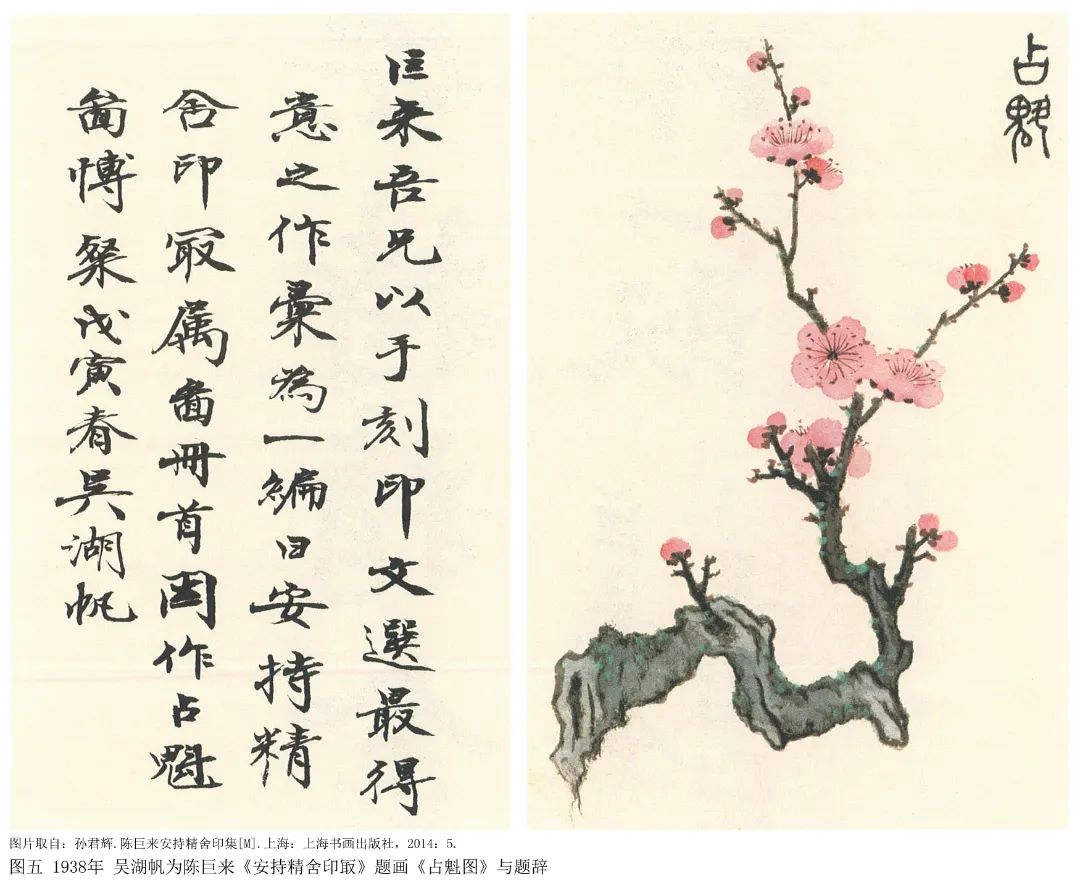 占魁
巨来吾兄以于刻印文選最得
意之作彙為一編曰安持精
舍印冣属啚冊首因作占魁
啚愽粲戊寅春吴湖帆
图片取自：孙君辉.陈巨来安持精舍印集[M].上海：上海书画出版社，2014：5.
图五 1938年 吴湖帆为陈巨来《安持精舍印冣》题画《占魁图》与题辞